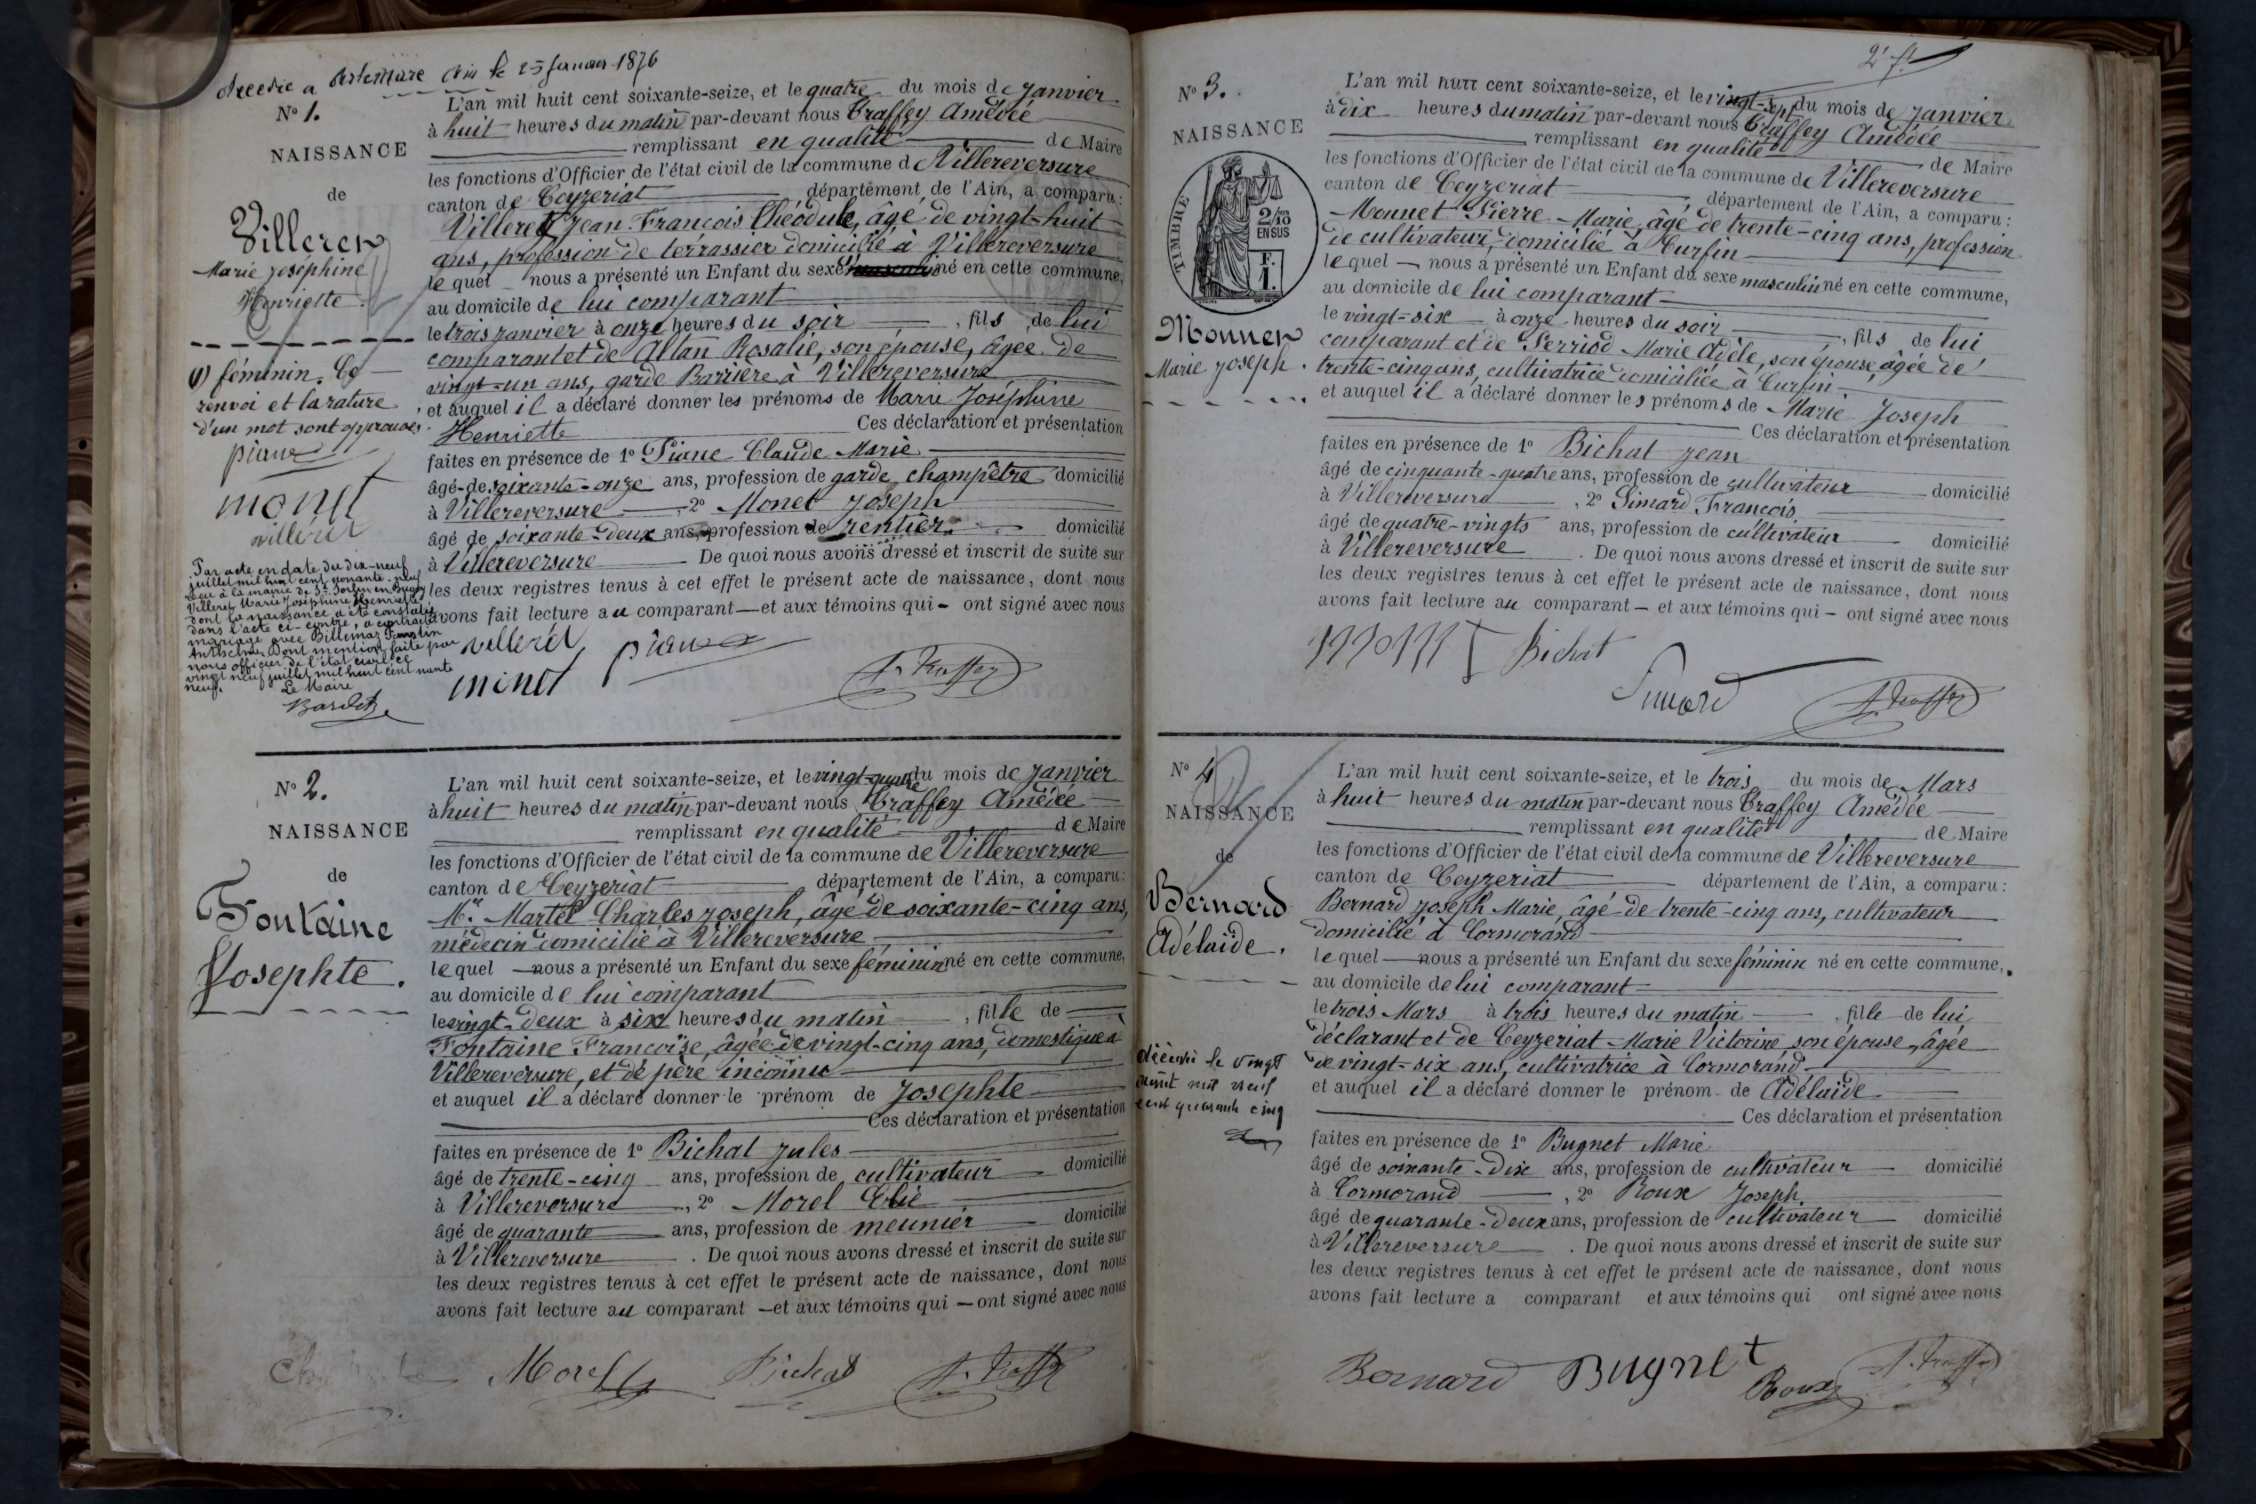 Artemare Ain le 25 janvier 1876
N° 1.
NAISSANCE
de
Villeret
Marie Joséphine
Henriette
(1) féminin. Ce
renvoi et la rature
d'un mot sont approuvés.
monet
villeret
Par acte en date du dix-neuf
juillet mil huit cent nonante-neuf
reçu à la mairie de St Sorlin en Bugey
Villeret Marie Joséphine Henriette
dont la naissance a été constatée
dans l'acte ci-contre, a contracté
mariage avec Billemaz
Anthelme. Dont mention faite par
nous officier de l'état civil ce
vingt neuf juillet mil huit cent nonante
neuf.
Le Maire
L'an mil huit cent soixante-seize, et le quatre du mois de Janvier
à huit heures du matin par-devant nous Traffey Amédée
remplissant en qualité de Maire
les fonctions d'Officier de l'état civil de la commune de Villereversure
canton de Ceyzeriat département de l'Ain, a comparu:
Villeret Jean François Théodule, âgé de vingt-huit
ans, profession de terrassier domicilié à Villereversure
lequel nous a présenté un Enfant du sexe né en cette commune,
au domicile de lui comparant
le trois janvier à onze heures du soir, fils de lui
comparant et de Altan Rosalie, son épouse, âgée de
vingt-un ans, garde Barrière à Villereversure
et auquel il a déclaré donner les prénoms de Marie Joséphine
Henriette Ces déclaration et présentation
faites en présence de 1° Piane Claude Marie
âgé de soixante-onze ans, profession de garde champêtre domicilié
à Villereversure, 2° Monet Joseph
âgé de soixante-deux ans, profession de rentier domicilié
à Villereversure De quoi nous avons dressé et inscrit de suite sur
les deux registres tenus à cet effet le présent acte de naissance, dont nous
avons fait lecture au comparant — et aux témoins qui - ont signé avec nous
villeret
monet
A. Traffey
N° 2.
NAISSANCE
de
Fontaine
Josephte.
L'an mil huit cent soixante-seize, et le vingt-quatre du mois de Janvier
à huit heures du matin par-devant nous Traffey Amédée
remplissant en qualité de Maire
les fonctions d'Officier de l'état civil de la commune de Villereversure
canton de Ceyzeriat département de l'Ain, a comparu:
Mr. Martel Charles Joseph, âgé de soixante-cinq ans,
médecin domicilié à Villereversure
lequel — nous a présenté un Enfant du sexe féminin né en cette commune,
au domicile de lui comparant
le vingt-deux à six heures du matin, fille de
Fontaine Françoise, âgée de vingt-cinq ans, domestique à
Villereversure, et de père inconnu
et auquel il a déclaré donner le prénom de Josephte
Ces déclaration et présentation
faites en présence de 1° Bichat Jules
âgé de trente-cinq ans, profession de cultivateur domicilié
à Villereversure, 2° Morel Elie
âgé de quarante ans, profession de meunier domicilié
à Villereversure. De quoi nous avons dressé et inscrit de suite sur
les deux registres tenus à cet effet le présent acte de naissance, dont nous
avons fait lecture au comparant — et aux témoins qui — ont signé avec nous
Morel Bichat A. Traffey
N° 3.
NAISSANCE
TIMBRE
2/10
EN SUS
F.
1.
Monnet
Marie Joseph.
L'an mil huit cent soixante-seize, et le vingt-sept du mois de Janvier
à dix heures du matin par-devant nous Traffey Amédée
remplissant en qualité de Maire
les fonctions d'Officier de l'état civil de la commune de Villereversure
canton de Ceyzeriat, département de l'Ain, a comparu:
Monnet Pierre-Marie, âgé de trente-cinq ans, profession
de cultivateur, domicilié à Curfin
lequel — nous a présenté un Enfant du sexe masculin né en cette commune,
au domicile de lui comparant
le vingt-six à onze heures du soir, fils de lui
comparant et de Perriod Marie Adèle, son épouse, âgée de
trente-cinq ans, cultivatrice domiciliée à Curfin
et auquel il a déclaré donner les prénoms de Marie Joseph
Ces déclaration et présentation
faites en présence de 1° Bichat Jean
âgé de cinquante-quatre ans, profession de cultivateur domicilié
à Villereversure, 2° Simard François
âgé de quatre-vingts ans, profession de cultivateur domicilié
à Villereversure. De quoi nous avons dressé et inscrit de suite sur
les deux registres tenus à cet effet le présent acte de naissance, dont nous
avons fait lecture au comparant — et aux témoins qui - ont signé avec nous
Bichat
Simard
A. Traffey
N° 4
NAISSANCE
de
Bernard
Adélaide.
décédée le vingt
août mil neuf
cent quarante cinq
L'an mil huit cent soixante-seize, et le trois du mois de Mars
à huit heures du matin par-devant nous Traffey Amédée
remplissant en qualité de Maire
les fonctions d'Officier de l'état civil de la commune de Villereversure
canton de Ceyzeriat département de l'Ain, a comparu:
Bernard Joseph Marie, âgé de trente-cinq ans, cultivateur
domicilié à Cormorand
lequel — nous a présenté un Enfant du sexe féminin né en cette commune,
au domicile de lui comparant
le trois Mars à trois heures du matin, fille de lui
déclarant et de Ceyzeriat Marie Victorine son épouse, âgée
de vingt-six ans, cultivatrice à Cormorand,
et auquel il a déclaré donner le prénom de Adélaïde
Ces déclaration et présentation
faites en présence de 1° Bugnet Marie
âgé de soixante-dix ans, profession de cultivateur domicilié
à Cormorand, 2° Roux Joseph
âgé de quarante-deux ans, profession de cultivateur domicilié
à Villereversure. De quoi nous avons dressé et inscrit de suite sur
les deux registres tenus à cet effet le présent acte de naissance, dont nous
avons fait lecture a comparant et aux témoins qui ont signé avec nous
Bernard Bugnet Roux A. Traffey